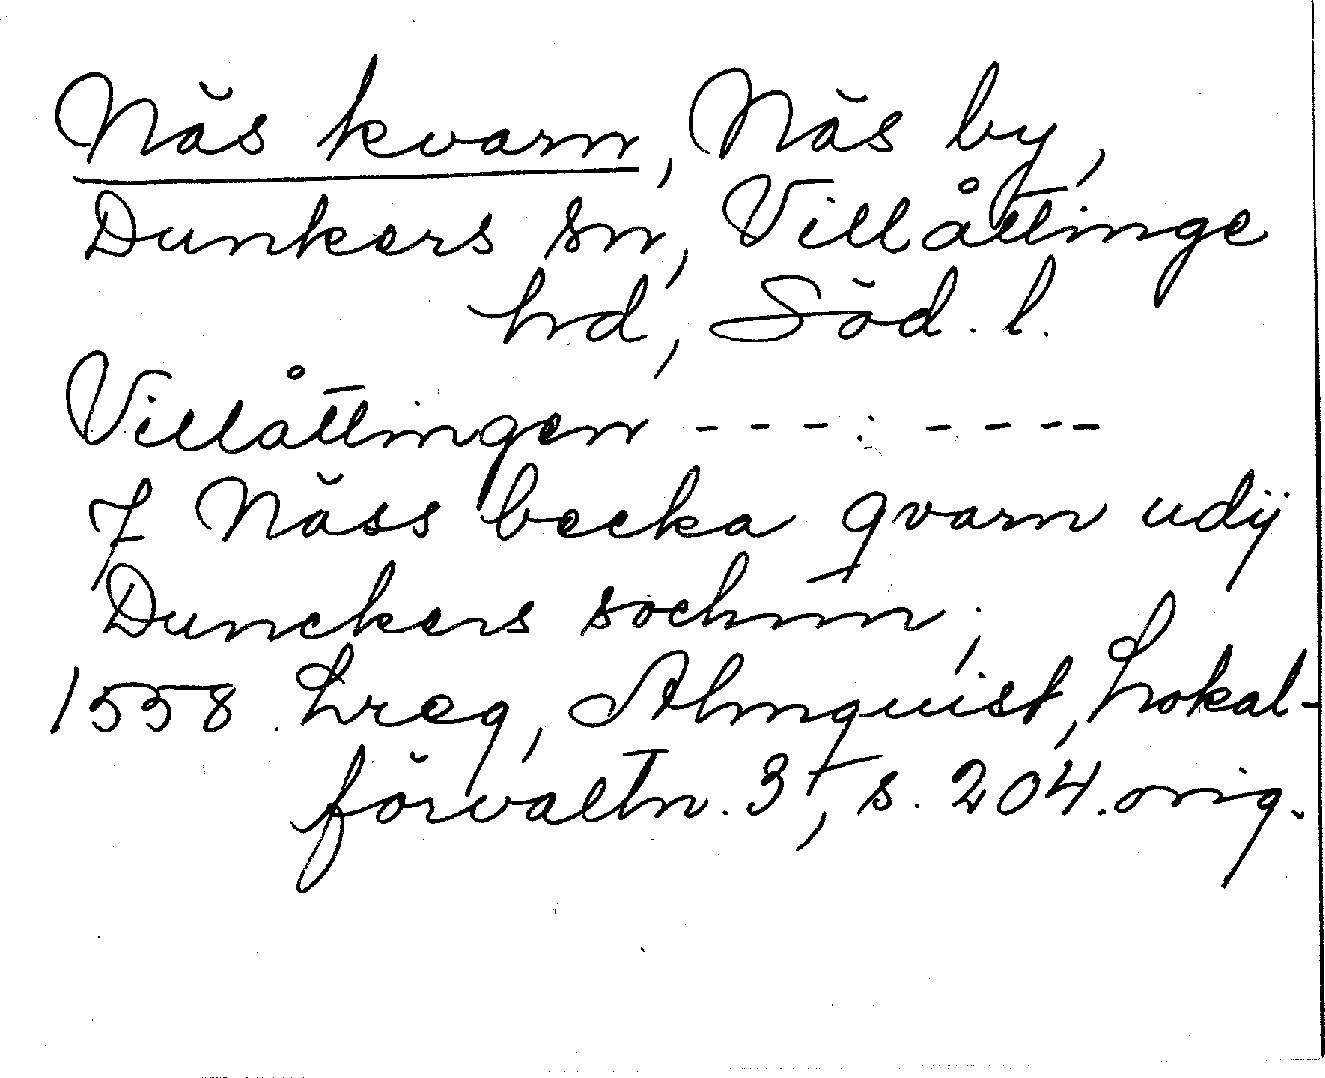 Näs kvarn, Näs by,
Dunkers sn, Villåttinge
hd, Söd. l.
Villåttingen - - - : - - - -
J Näss becka qvarn udij
Dunckers sochnn;
1558. Lreg, Almquist, Lokal-
förvaltn. 3, s. 204. orig.